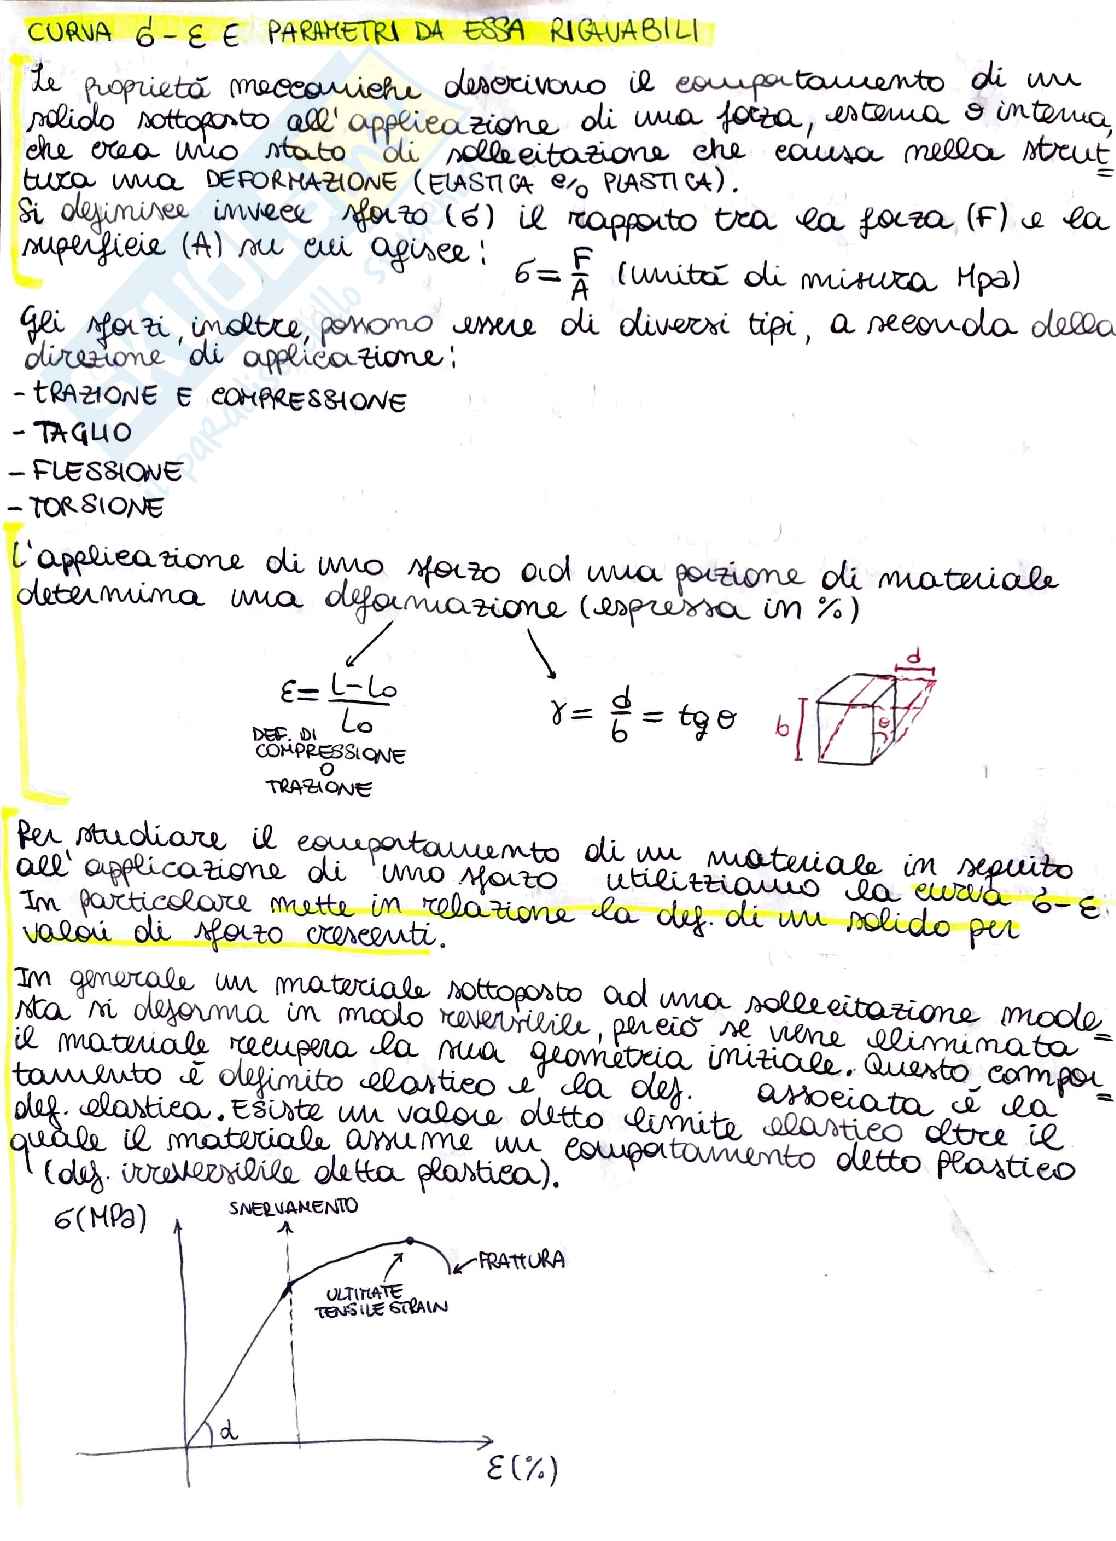 CURVA σ-ε E PARAMETRI DA ESSA RICAVABILI
Le proprietà meccaniche descrivono il comportamento di un
solido sottoposto all'applicazione di una forza, esterna o interna,
che crea uno stato di sollecitazione che causa nella strut=
tura una DEFORMAZIONE (ELASTICA e/o PLASTICA).
Si definisce invece sforzo (σ) il rapporto tra la forza (F) e la
superficie (A) su cui agisce:
σ = F/A (unità di misura Mpa)
Gli sforzi, inoltre, possono essere di diversi tipi, a seconda della
direzione di applicazione:
- TRAZIONE E COMPRESSIONE
- TAGLIO
- FLESSIONE
- TORSIONE
L'applicazione di uno sforzo ad una porzione di materiale
determina una deformazione (espressa in %)
ε = L-L0/L0
DEF. DI
COMPRESSIONE
O
TRAZIONE
γ = d/b = tg θ
d
b
θ
Per studiare il comportamento di un materiale in seguito
all'applicazione di uno sforzo utilizziamo la curva σ-ε.
In particolare mette in relazione la def. di un solido per
valori di sforzo crescenti.
In generale un materiale sottoposto ad una sollecitazione mode=
sta si deforma in modo reversibile, perciò se viene eliminata
il materiale recupera la sua geometria iniziale. Questo compor=
tamento è definito elastico e la def. associata è la
def. elastica. Esiste un valore detto limite elastico oltre il
quale il materiale assume un comportamento detto plastico
(def. irreversibile detta plastica).
σ(MPa)
SNERVAMENTO
FRATTURA
ULTIMATE
TENSILE STRAIN
α
ε(%)
SKUOLA
il paradiso dello studente